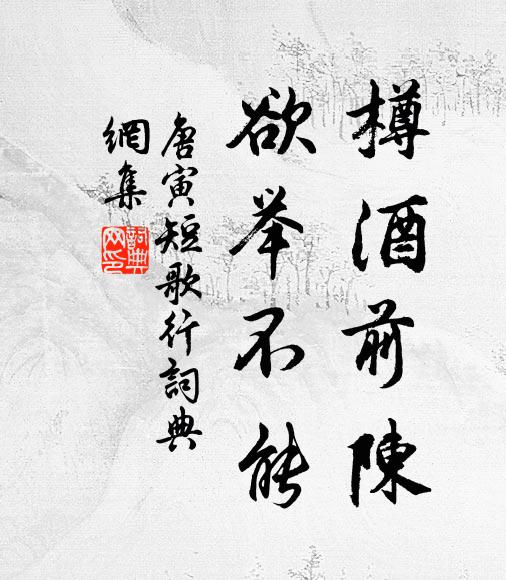 樽酒前陳
欲举不能
唐寅短歌行詞典
網集
詞典
网印